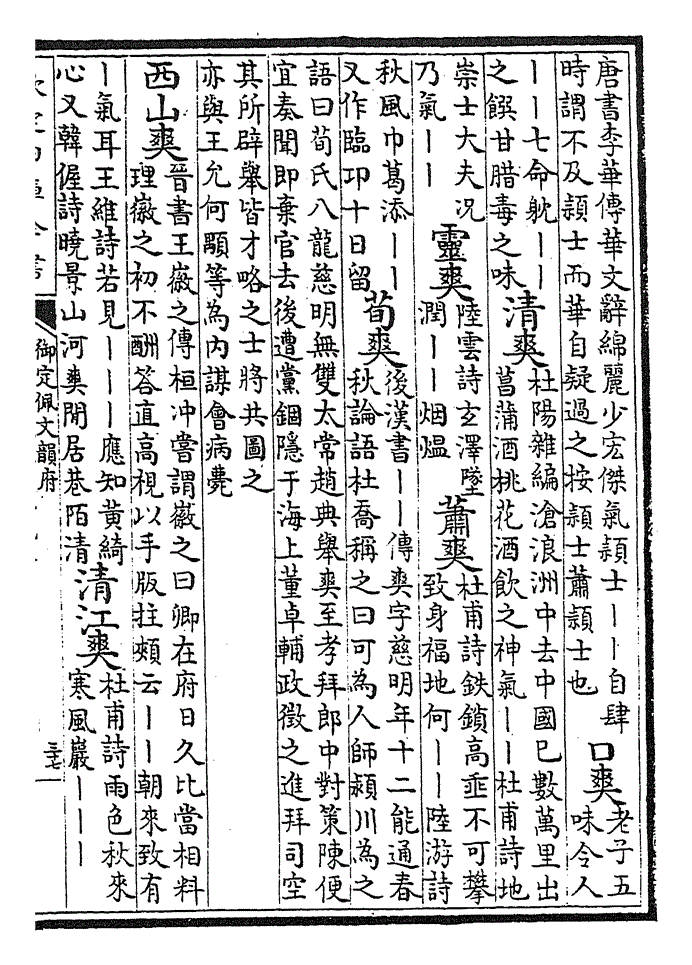 唐書李華傳華文辭綿麗少宏傑氣頴士丨丨自肆
時謂不及頴士而華自疑過之按頴士蕭頴士也
口爽
老子五
味令人
丨丨七命躭丨丨
之饌甘腊毒之味
清爽
杜陽雜編滄浪洲中去中國已數萬里出
菖蒲酒桃花酒飲之神氣丨丨杜甫詩地
崇士大夫况
乃氣丨丨
靈爽
陸雲詩玄澤墜
潤丨丨烟煴
蕭爽
杜甫詩鉄鎖高垂不可攀
致身福地何丨丨陸游詩
秋風巾葛添丨丨
又作臨卭十日留
荀爽
後漢書丨丨傳爽字慈明年十二能通春
秋論語杜喬稱之曰可為人師頴川為之
語曰荀氏八龍慈明無雙太常趙典舉爽至孝拜郎中對策陳便
宜奏聞即棄官去後遭黨錮隠于海上董卓輔政徵之進拜司空
其所辟舉皆才略之士將共圖之
亦與王允何顒等為内謀會病薨
西山爽
晉書王徽之傳桓冲嘗謂徽之曰卿在府日久比當相料
理徽之初不酬答直高視以手版拄頰云丨丨朝來致有
丨氣耳王維詩若見丨丨丨應知黄綺
心又韓偓詩曉景山河爽閒居巷陌清
清江爽
杜甫詩雨色秋來
寒風巖丨丨丨
御定佩文韻府